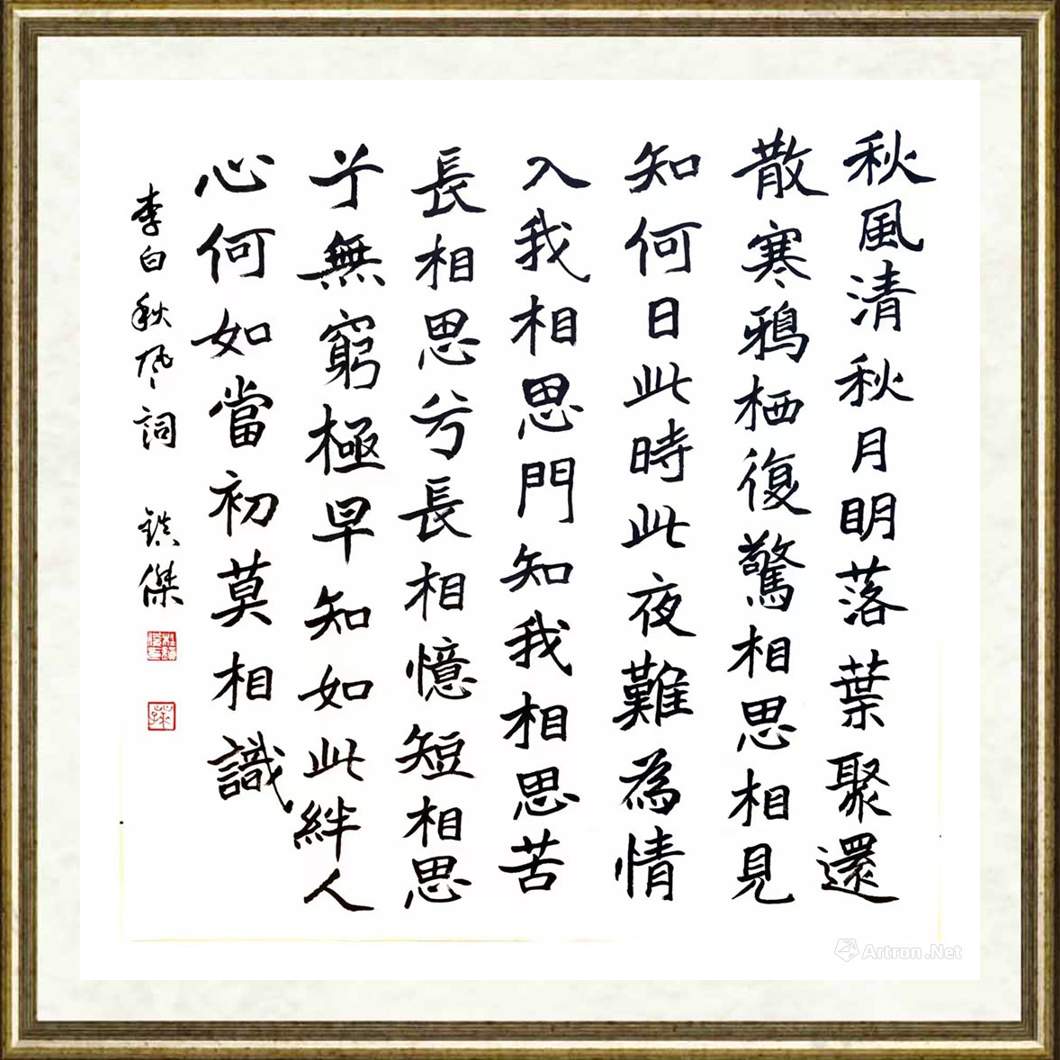 秋風清秋月明落葉聚還
散寒鴉栖復驚相思相見
知何日此時此夜難為情
入我相思門知我相思苦
長相思兮長相憶短相思
兮無窮極早知如此絆人
心何如當初莫相識
李白秋风詞 傑
Artron.Net